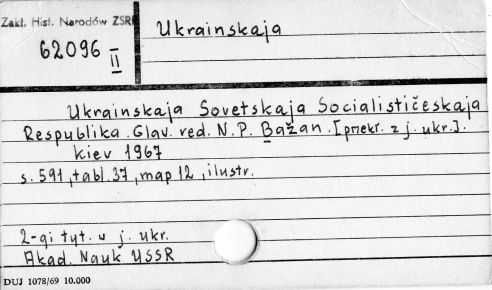 Zakł. Hist. Narodów ZSR
62096
II
Ukrainskaja
Ukrainskaja Sovetskaja Socialističeskaja
Respublika. Glav. red. N.P. Bažan. [przekł. z j. ukr.].
Kiev 1967
s. 591, tabl. 37, map 12, ilustr.
2-gi tyt. w j. ukr.
Akad. Nauk USSR
DUJ 1078/69 10.000